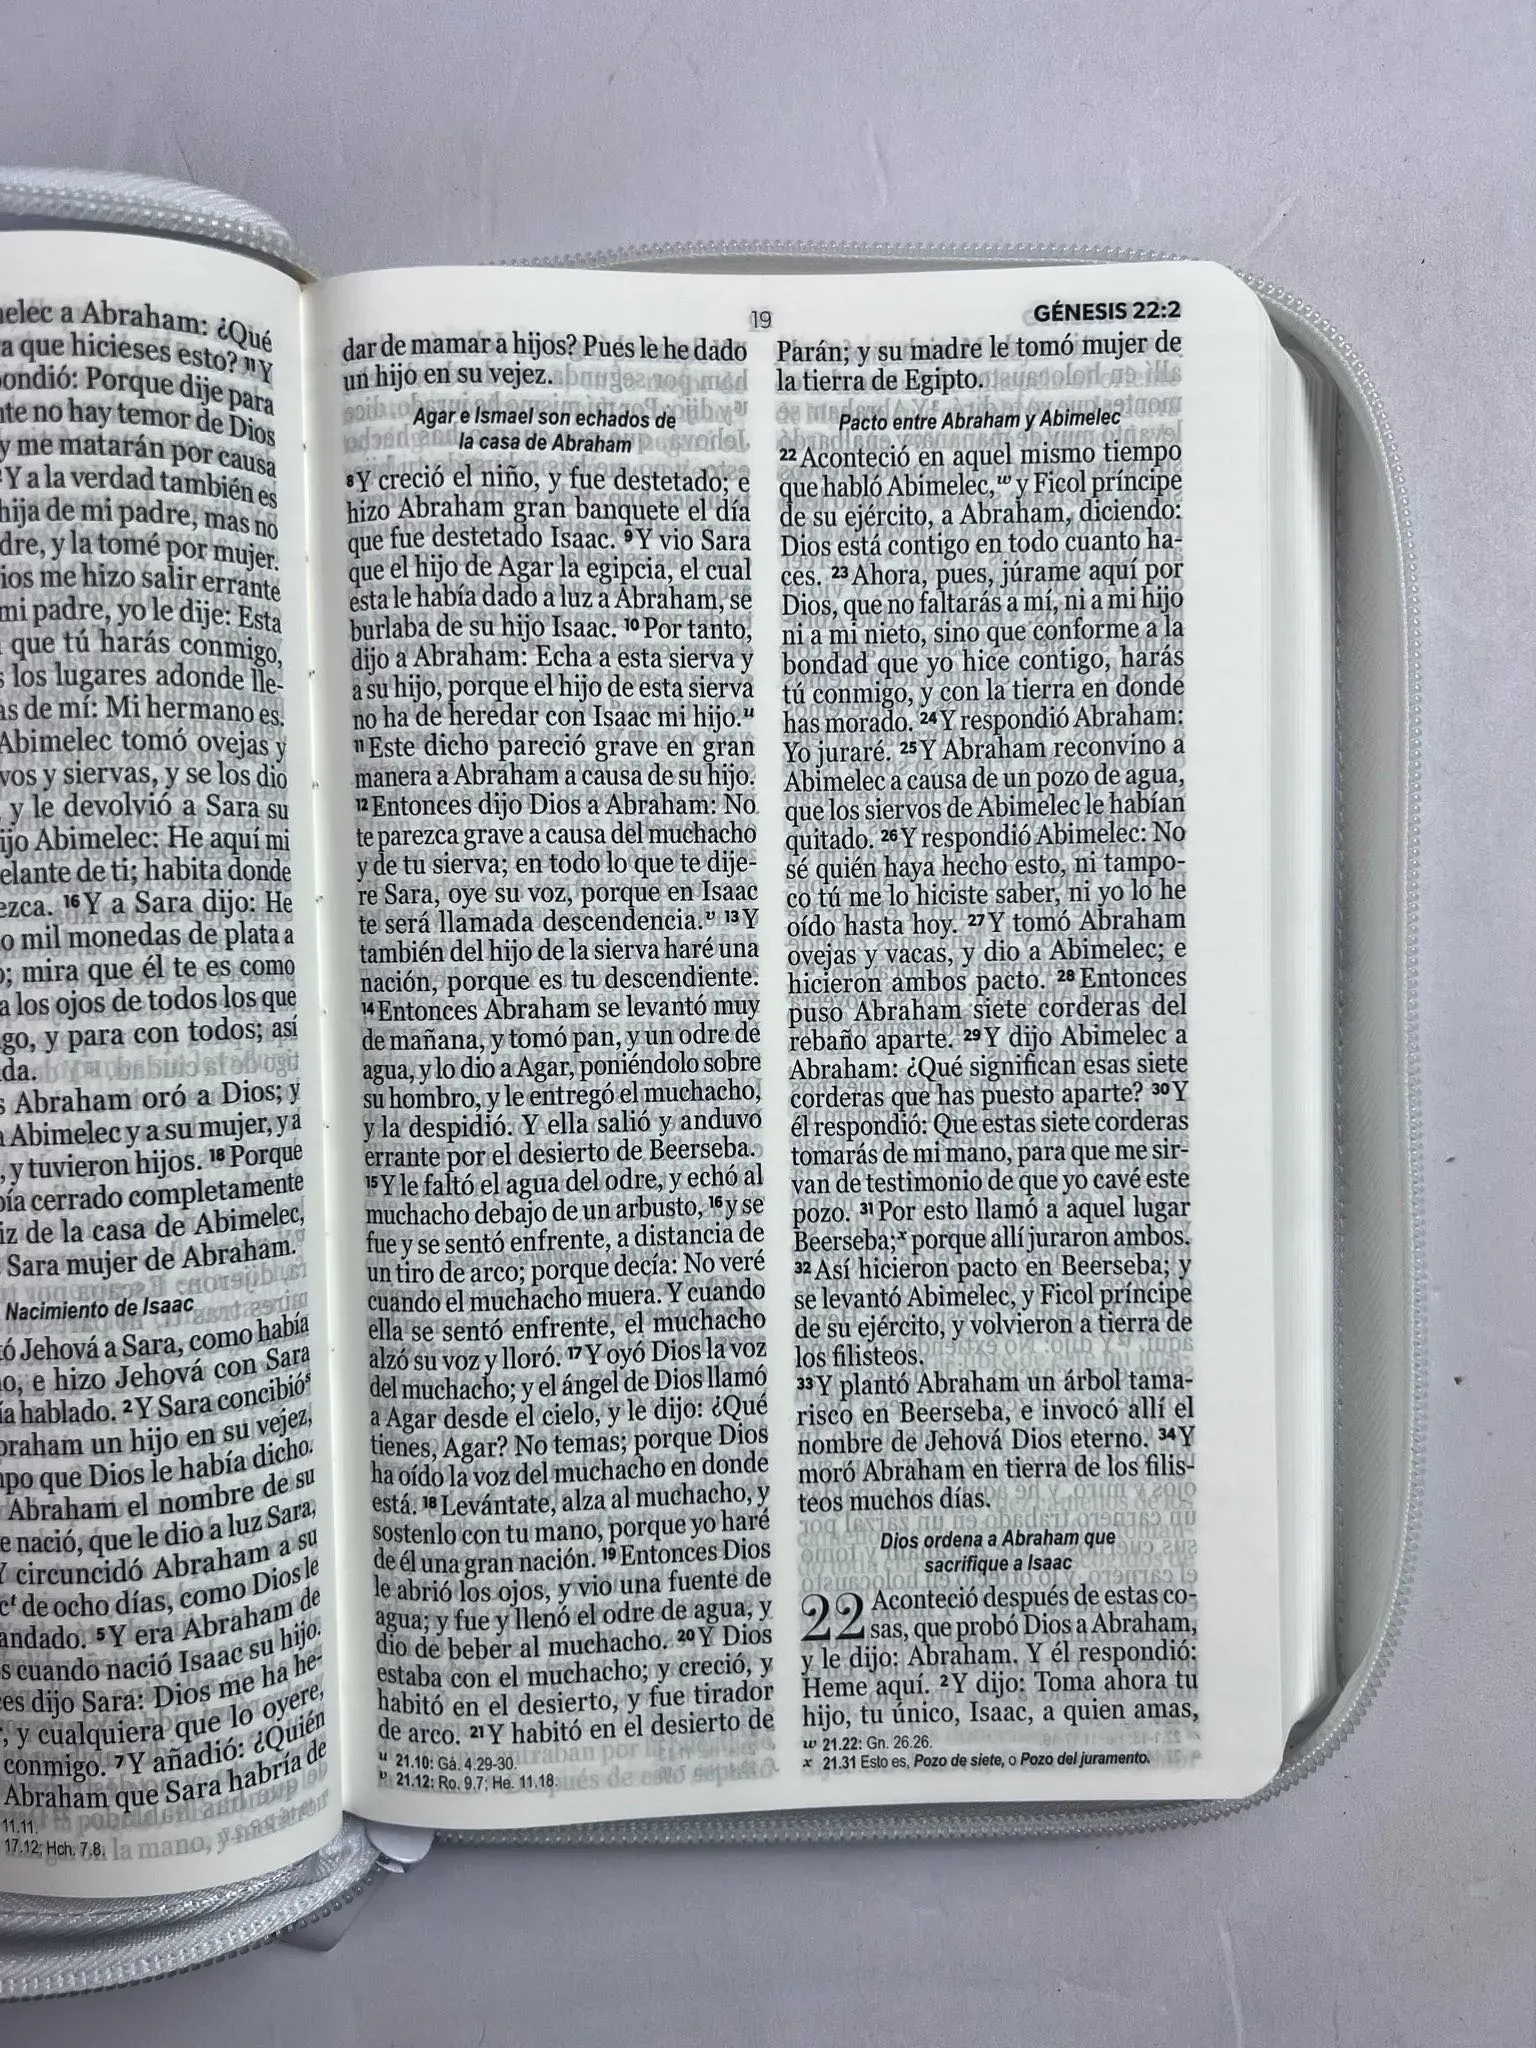 elec a Abraham: ¿Qué
a que hicieses esto? 11 Y
ondió: Porque dije para
te no hay temor de Dios
y me matarán por causa
Y a la verdad también es
hija de mi padre, mas no
dre, y la tomé por mujer.
ios me hizo salir errante
mi padre, yo le dije: Esta
que tú harás conmigo,
los lugares adonde lle-
as de mí: Mi hermano es.
Abimelec tomó ovejas y
vos y siervas, y se los dio
y le devolvió a Sara su
ijo Abimelec: He aquí mi
elante de ti; habita donde
ezca. 16 Y a Sara dijo: He
o mil monedas de plata a
; mira que él te es como
a los ojos de todos los que
go, y para con todos; así
da.
Abraham oró a Dios; y
Abimelec y a su mujer, y a
, y tuvieron hijos. 18 Porque
ía cerrado completamente
iz de la casa de Abimelec,
Sara mujer de Abraham.
Nacimiento de Isaac
ó Jehová a Sara, como había
o, e hizo Jehová con Sara
ía hablado. 2 Y Sara concibió s
braham un hijo en su vejez,
po que Dios le había dicho.
Abraham el nombre de su
e nació, que le dio a luz Sara,
Y circuncidó Abraham a su
c t de ocho días, como Dios le
andado. 5 Y era Abraham de
s cuando nació Isaac su hijo.
es dijo Sara: Dios me ha he-
, y cualquiera que lo oyere,
conmigo. 7 Y añadió: ¿Quién
Abraham que Sara habría de
11.11.
17.12; Hch. 7.8.
19
GÉNESIS 22:2
dar de mamar a hijos? Pues le he dado
un hijo en su vejez.
Agar e Ismael son echados de
la casa de Abraham
8 Y creció el niño, y fue destetado; e
hizo Abraham gran banquete el día
que fue destetado Isaac. 9 Y vio Sara
que el hijo de Agar la egipcia, el cual
esta le había dado a luz a Abraham, se
burlaba de su hijo Isaac. 10 Por tanto,
dijo a Abraham: Echa a esta sierva y
a su hijo, porque el hijo de esta sierva
no ha de heredar con Isaac mi hijo. u
11 Este dicho pareció grave en gran
manera a Abraham a causa de su hijo.
12 Entonces dijo Dios a Abraham: No
te parezca grave a causa del muchacho
y de tu sierva; en todo lo que te dije-
re Sara, oye su voz, porque en Isaac
te será llamada descendencia. v 13 Y
también del hijo de la sierva haré una
nación, porque es tu descendiente.
14 Entonces Abraham se levantó muy
de mañana, y tomó pan, y un odre de
agua, y lo dio a Agar, poniéndolo sobre
su hombro, y le entregó el muchacho,
y la despidió. Y ella salió y anduvo
errante por el desierto de Beerseba.
15 Y le faltó el agua del odre, y echó al
muchacho debajo de un arbusto, 16 y se
fue y se sentó enfrente, a distancia de
un tiro de arco; porque decía: No veré
cuando el muchacho muera. Y cuando
ella se sentó enfrente, el muchacho
alzó su voz y lloró. 17 Y oyó Dios la voz
del muchacho; y el ángel de Dios llamó
a Agar desde el cielo, y le dijo: ¿Qué
tienes, Agar? No temas; porque Dios
ha oído la voz del muchacho en donde
está. 18 Levántate, alza al muchacho, y
sostenlo con tu mano, porque yo haré
de él una gran nación. 19 Entonces Dios
le abrió los ojos, y vio una fuente de
agua; y fue y llenó el odre de agua, y
dio de beber al muchacho. 20 Y Dios
estaba con el muchacho; y creció, y
habitó en el desierto, y fue tirador
de arco. 21 Y habitó en el desierto de
u 21.10: Gá. 4.29-30.
v 21.12: Ro. 9.7; He. 11.18.
Parán; y su madre le tomó mujer de
la tierra de Egipto.
Pacto entre Abraham y Abimelec
22 Aconteció en aquel mismo tiempo
que habló Abimelec, w y Ficol príncipe
de su ejército, a Abraham, diciendo:
Dios está contigo en todo cuanto ha-
ces. 23 Ahora, pues, júrame aquí por
Dios, que no faltarás a mí, ni a mi hijo
ni a mi nieto, sino que conforme a la
bondad que yo hice contigo, harás
tú conmigo, y con la tierra en donde
has morado. 24 Y respondió Abraham:
Yo juraré. 25 Y Abraham reconvino a
Abimelec a causa de un pozo de agua,
que los siervos de Abimelec le habían
quitado. 26 Y respondió Abimelec: No
sé quién haya hecho esto, ni tampo-
co tú me lo hiciste saber, ni yo lo he
oído hasta hoy. 27 Y tomó Abraham
ovejas y vacas, y dio a Abimelec; e
hicieron ambos pacto. 28 Entonces
puso Abraham siete corderas del
rebaño aparte. 29 Y dijo Abimelec a
Abraham: ¿Qué significan esas siete
corderas que has puesto aparte? 30 Y
él respondió: Que estas siete corderas
tomarás de mi mano, para que me sir-
van de testimonio de que yo cavé este
pozo. 31 Por esto llamó a aquel lugar
Beerseba; x porque allí juraron ambos.
32 Así hicieron pacto en Beerseba; y
se levantó Abimelec, y Ficol príncipe
de su ejército, y volvieron a tierra de
los filisteos.
33 Y plantó Abraham un árbol tama-
risco en Beerseba, e invocó allí el
nombre de Jehová Dios eterno. 34 Y
moró Abraham en tierra de los filis-
teos muchos días.
Dios ordena a Abraham que
sacrifique a Isaac
22 Aconteció después de estas co-
sas, que probó Dios a Abraham,
y le dijo: Abraham. Y él respondió:
Heme aquí. 2 Y dijo: Toma ahora tu
hijo, tu único, Isaac, a quien amas,
w 21.22: Gn. 26.26.
x 21.31 Esto es, Pozo de siete, o Pozo del juramento.